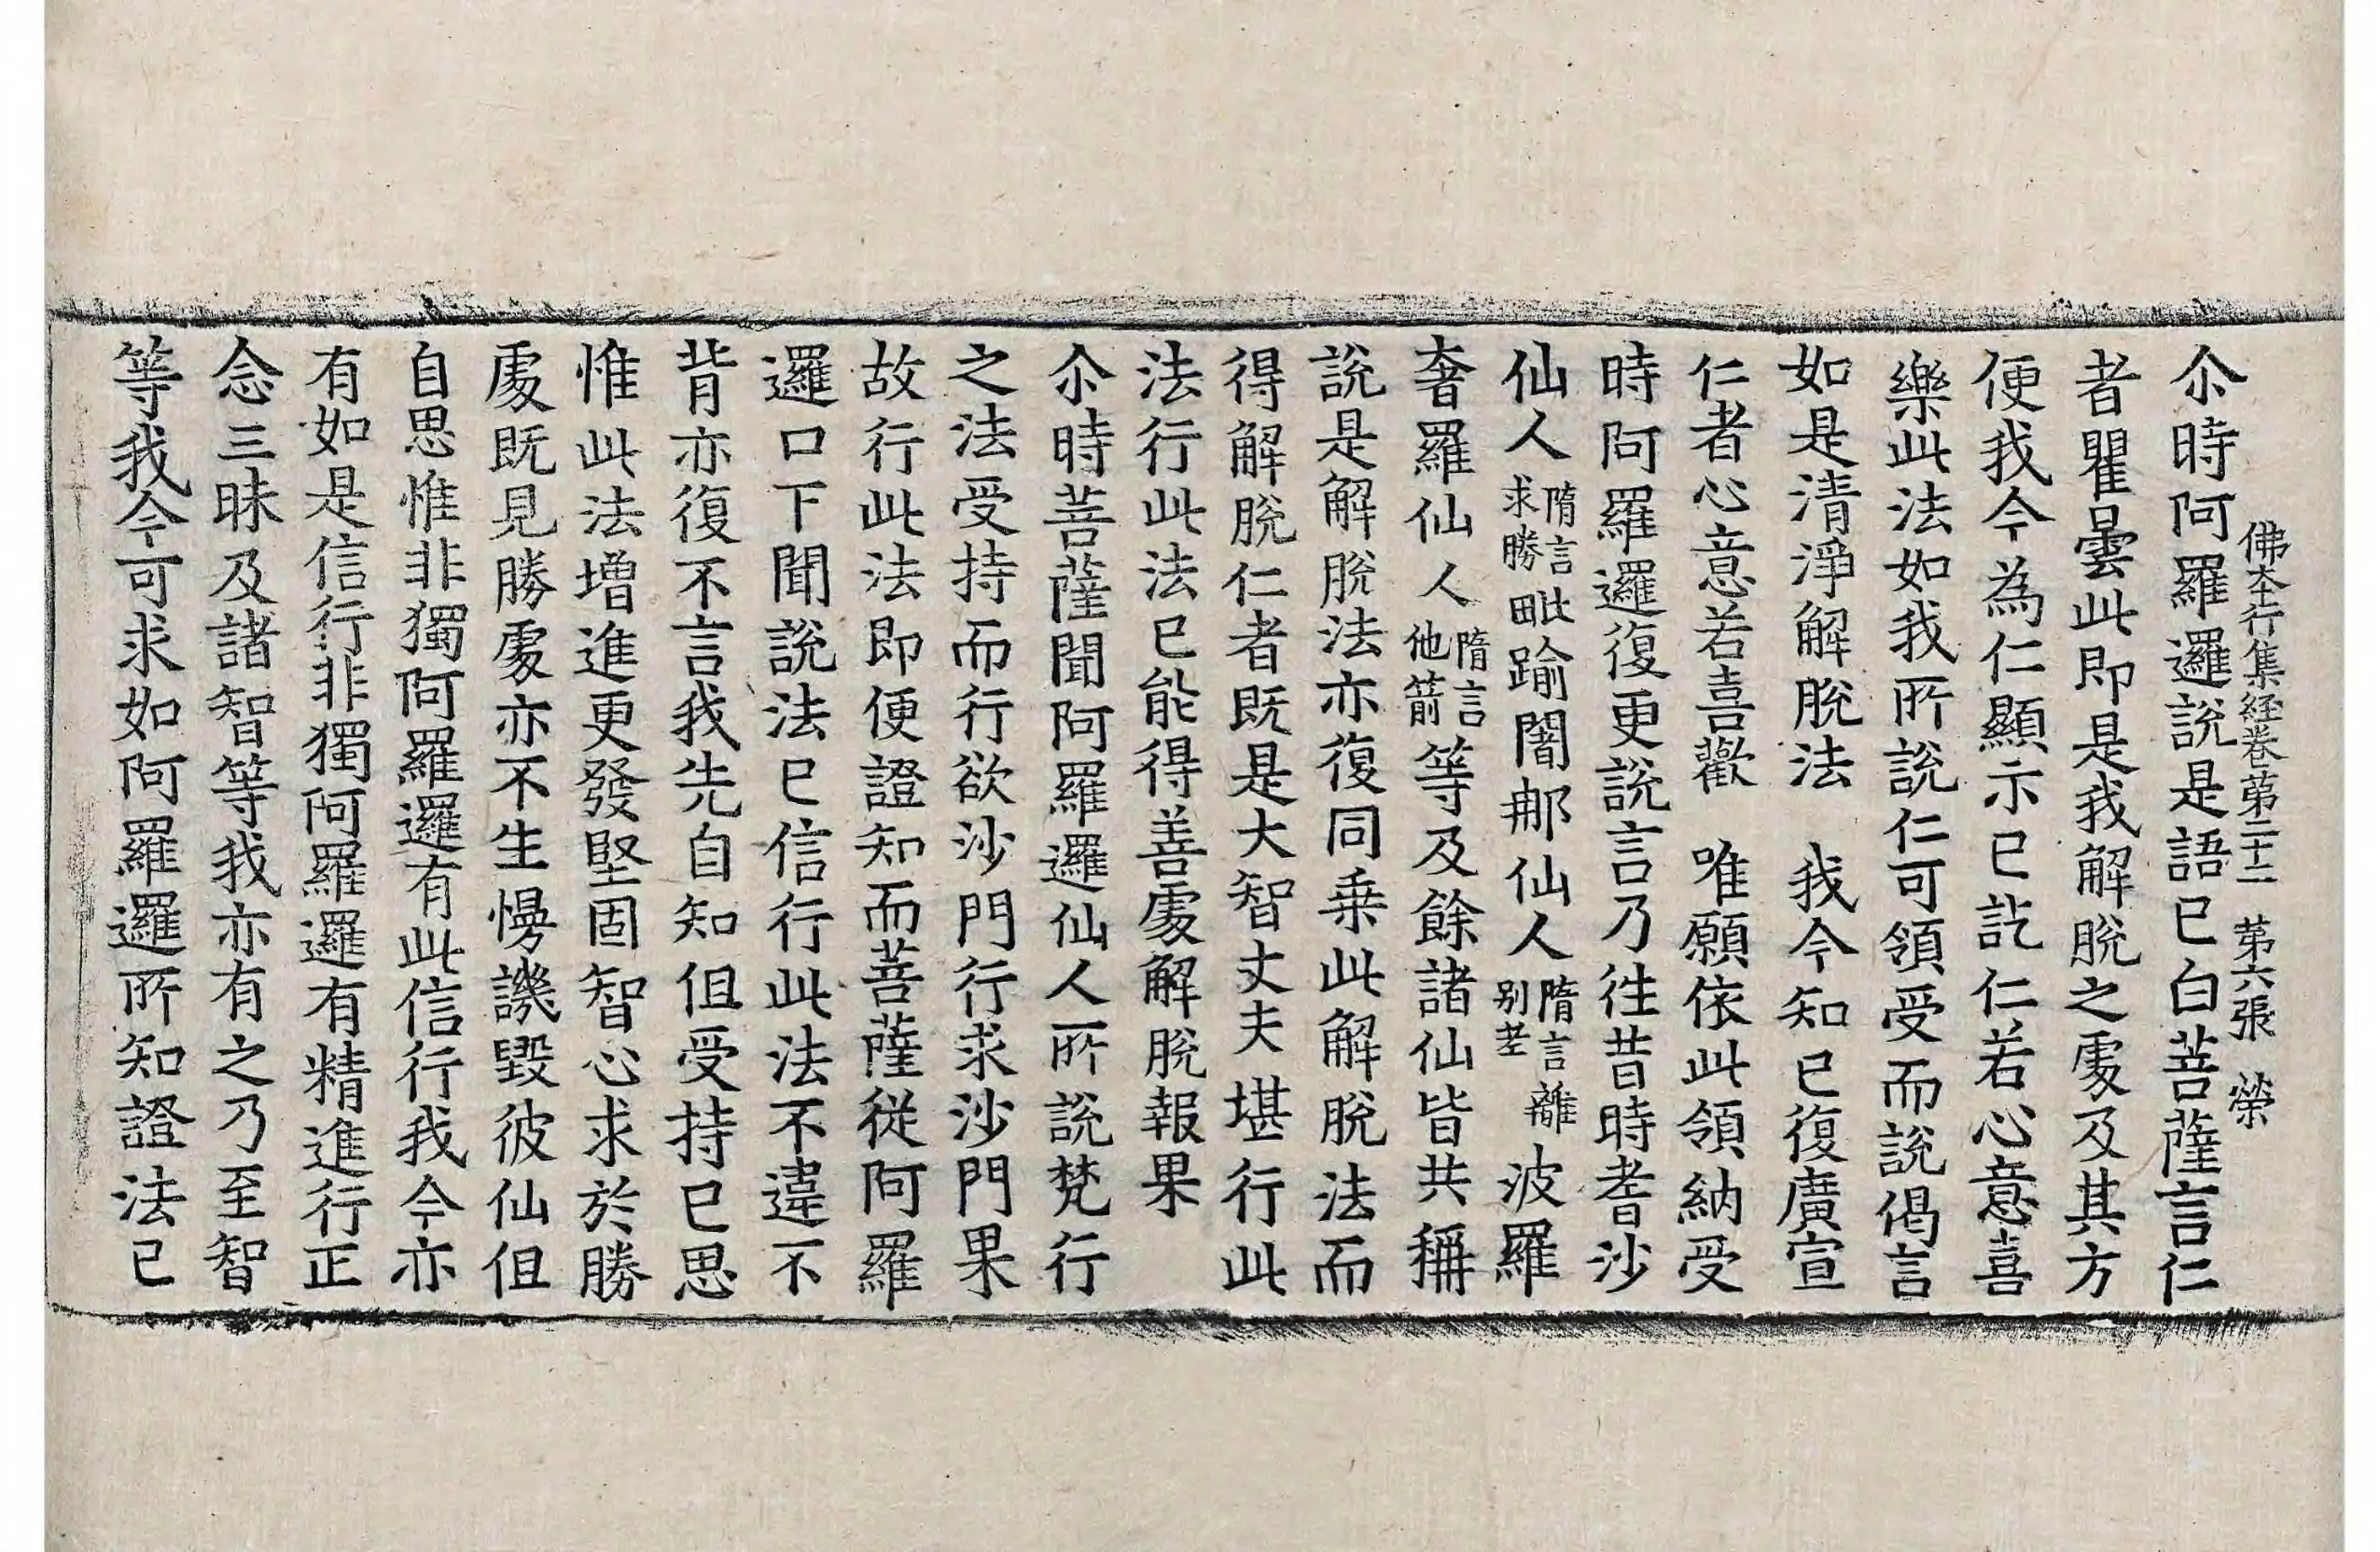 佛夲行集経卷苐二十二　苐六張　榮
尒時阿羅邏說是語已白菩薩言仁
者瞿曇此即是我解脫之處及其方
便我今為仁顯示已訖仁若心意喜
樂此法如我所說仁可領受而說偈言
如是清淨解脫法　我今知已復廣宣
仁者心意若喜歡　唯願依此領納受
時阿羅邏復更說言乃往昔時耆沙
仙人隋言求勝毗踰闍那仙人隋言別離波羅
奢羅仙人隋言他箭等及餘諸仙皆共稱
說是解脫法亦復同乗此解脫法而
得解脫仁者既是大智丈夫堪行此
法行此法已能得善處解脫報果
尒時菩薩聞阿羅邏仙人所說梵行
之法受持而行欲沙門行求沙門果
故行此法即便證知而菩薩從阿羅
邏口下聞說法已信行此法不違不
背亦復不言我先自知但受持已思
惟此法增進更發堅固智心求於勝
處既見勝處亦不生慢譏毀彼仙但
自思惟非獨阿羅邏有此信行我今亦
有如是信行非獨阿羅邏有精進行正
念三昧及諸智等我亦有之乃至智
等我今可求如阿羅邏所知證法已